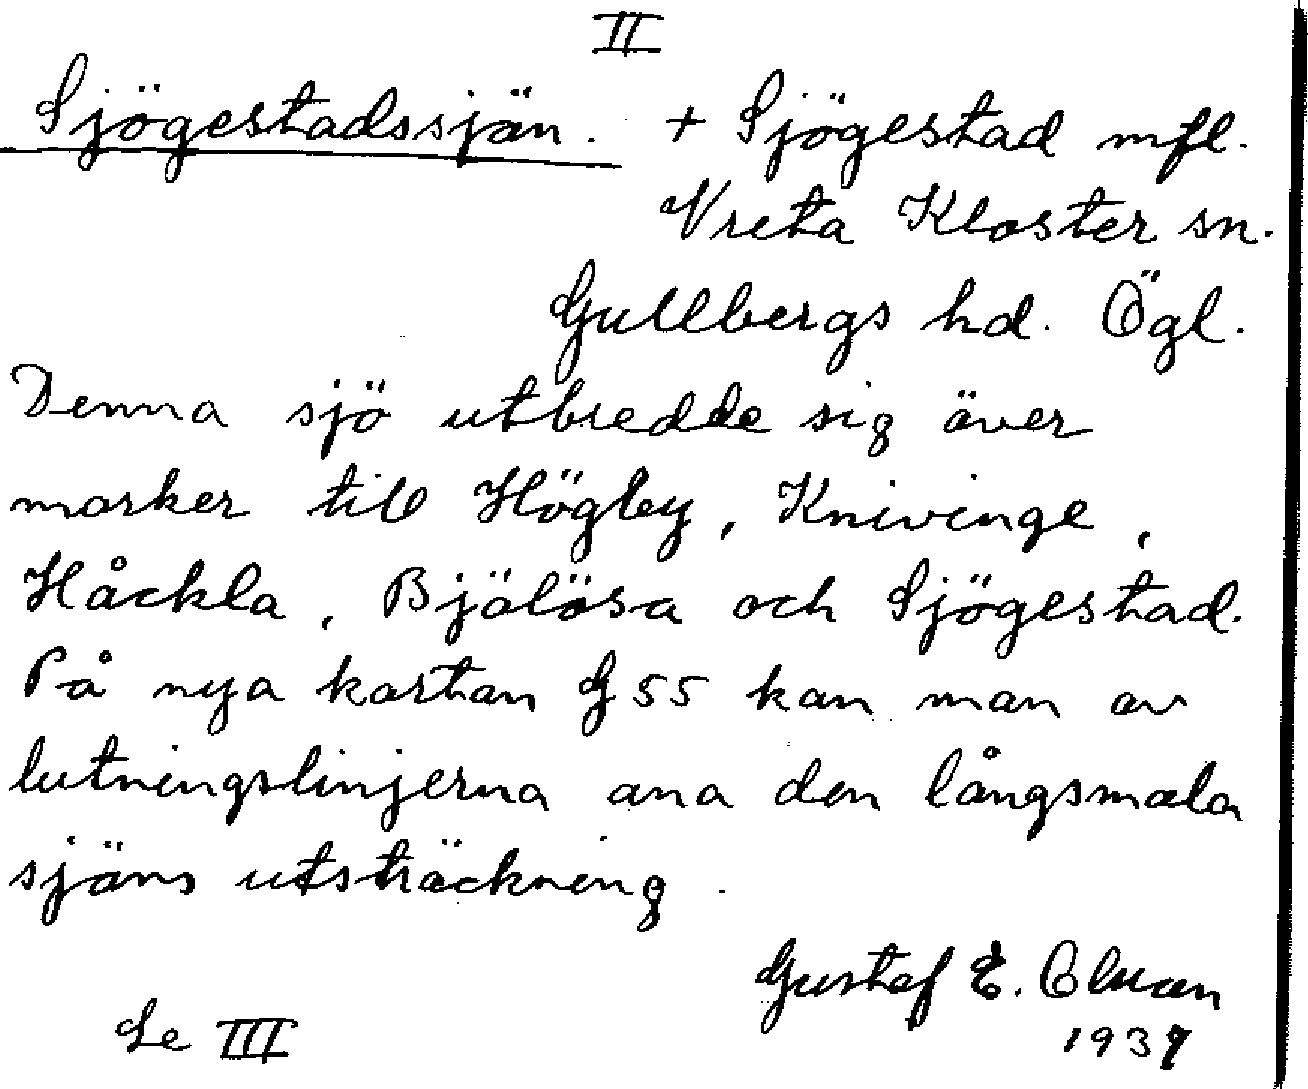 II
Sjögestadssjön. + Sjögestad mfl.
Vreta Kloster sn.
Gullbergs hd. Ögl.
Denna sjö utbredde sig över
marker till Högby, Knivinge,
Håckla, Bjölösa och Sjögestad.
På nya kartan G 55 kan man av
lutningslinjerna ana den långsmala
sjöns utsträckning.
Gustaf E.
Se III 1937